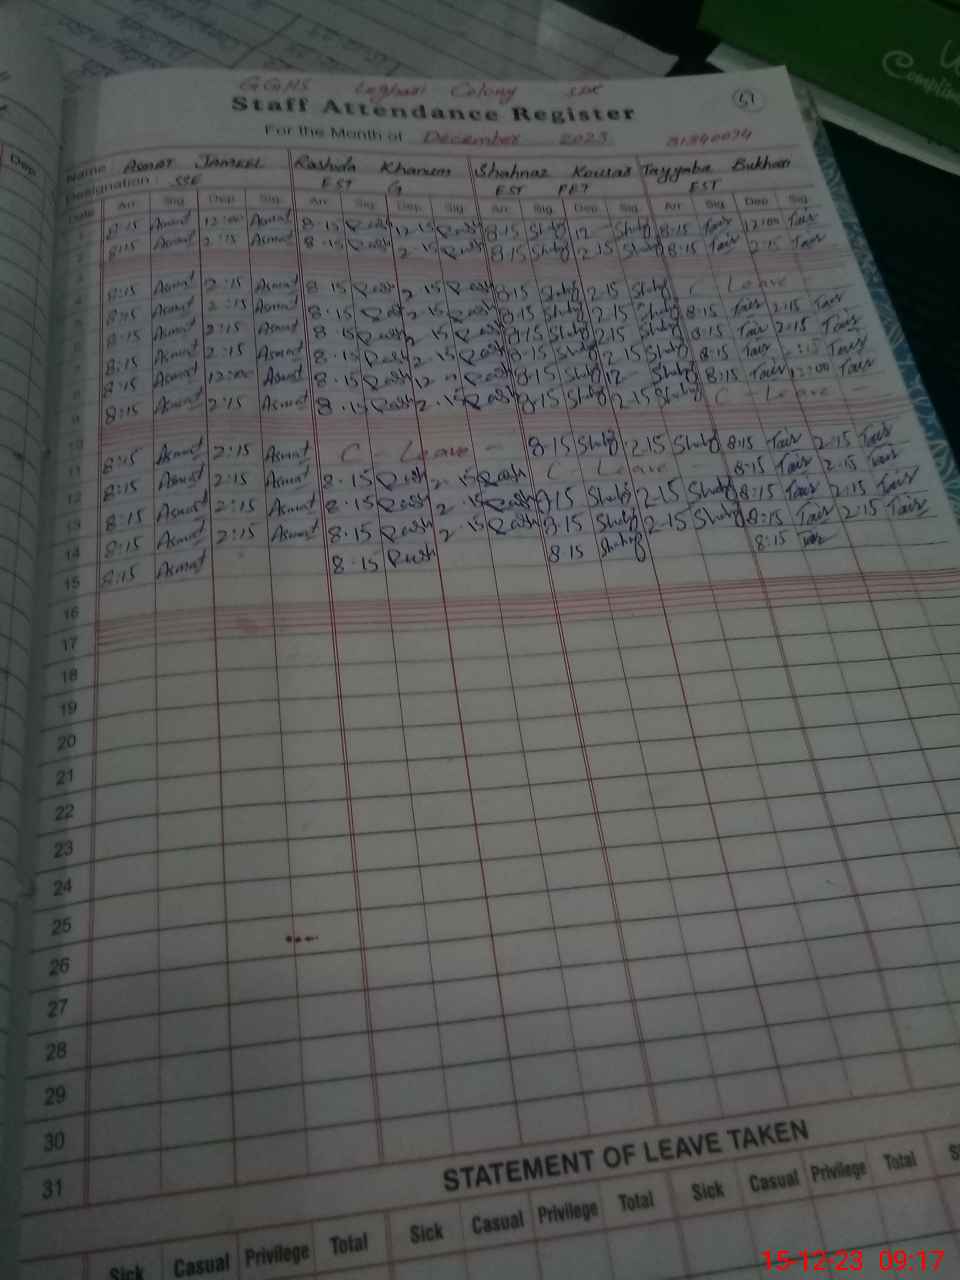 GGHS Leghari Colony
Staff Attendance Register
51
For the Month of December 2023
31340034
Name : Asmat Jameel Rashida Khanum Shahnaz Kousar Tayyaba Bukhari
Designation : SSE EST G EST PET EST
Date Arr. Sig. Dep. Sig. Arr. Sig. Dep. Sig. Arr. Sig. Dep. Sig. Arr. Sig. Dep. Sig.
8:15 Asmat 12:00 Asmat 8.15 Rash 12.15 Rash 8.15 Shahg 12 - Shahg 8:15 Tair 12:00 Tair
8:15 Asmat 2:15 Asmat 8.15 Rash 2.15 Rash 8.15 Shahg 2.15 Shahg 8:15 Tair 2:15 Tair
8:15 Asmat 2:15 Asmat 8.15 Rash 2.15 Rash 8.15 Shahg 2.15 Shahg C Leave -
8:15 Asmat 2:15 Asmat 8.15 Rash 2.15 Rash 8.15 Shahg 2.15 Shahg 8:15 Tair 2:15 Tair
8:15 Asmat 2:15 Asmat 8.15 Rash 2.15 Rash 8.15 Shahg 2.15 Shahg 8:15 Tair 2:15 Tair
8:15 Asmat 2:15 Asmat 8.15 Rash 2.15 Rash 8.15 Shahg 2.15 Shahg 8:15 Tair Tair
8:15 Asmat 12:00 Asmat 8.15 Rash 12 Rash 8.15 Shahg 12 - Shahg 8:15 Tair 12:00 Tair
9 8:15 Asmat 2:15 Asmat 8.15 Rash 2.15 Rash 8.15 Shahg 2.15 Shahg C - Leave -
10
11 8:15 Asmat 2:15 Asmat C - Leave - 8.15 Shahg 2.15 Shahg 8:15 Tair 2:15 Tair
12 8:15 Asmat 2:15 Asmat 8.15 Rash 2.15 Rash C - Leave - 8:15 Tair 2:15 Tair
13 8:15 Asmat 2:15 Asmat 8.15 Rash 2.15 Rash 8.15 Shahg 2.15 Shahg 8:15 Tair 2:15 Tair
14 8:15 Asmat 2:15 Asmat 8.15 Rash 2.15 Rash 8.15 Shahg 2.15 Shahg 8:15 Tair 2:15 Tair
15 8:15 Asmat 8.15 Rash 8.15 Shahg 8:15 Tair
16
17
18
19
20
21
22
23
24
25
26
27
28
29
30
31
STATEMENT OF LEAVE TAKEN
Sick Casual Privilege Total Sick Casual Privilege Total Sick Casual Privilege Total
15-12-23 09:17
Dep.